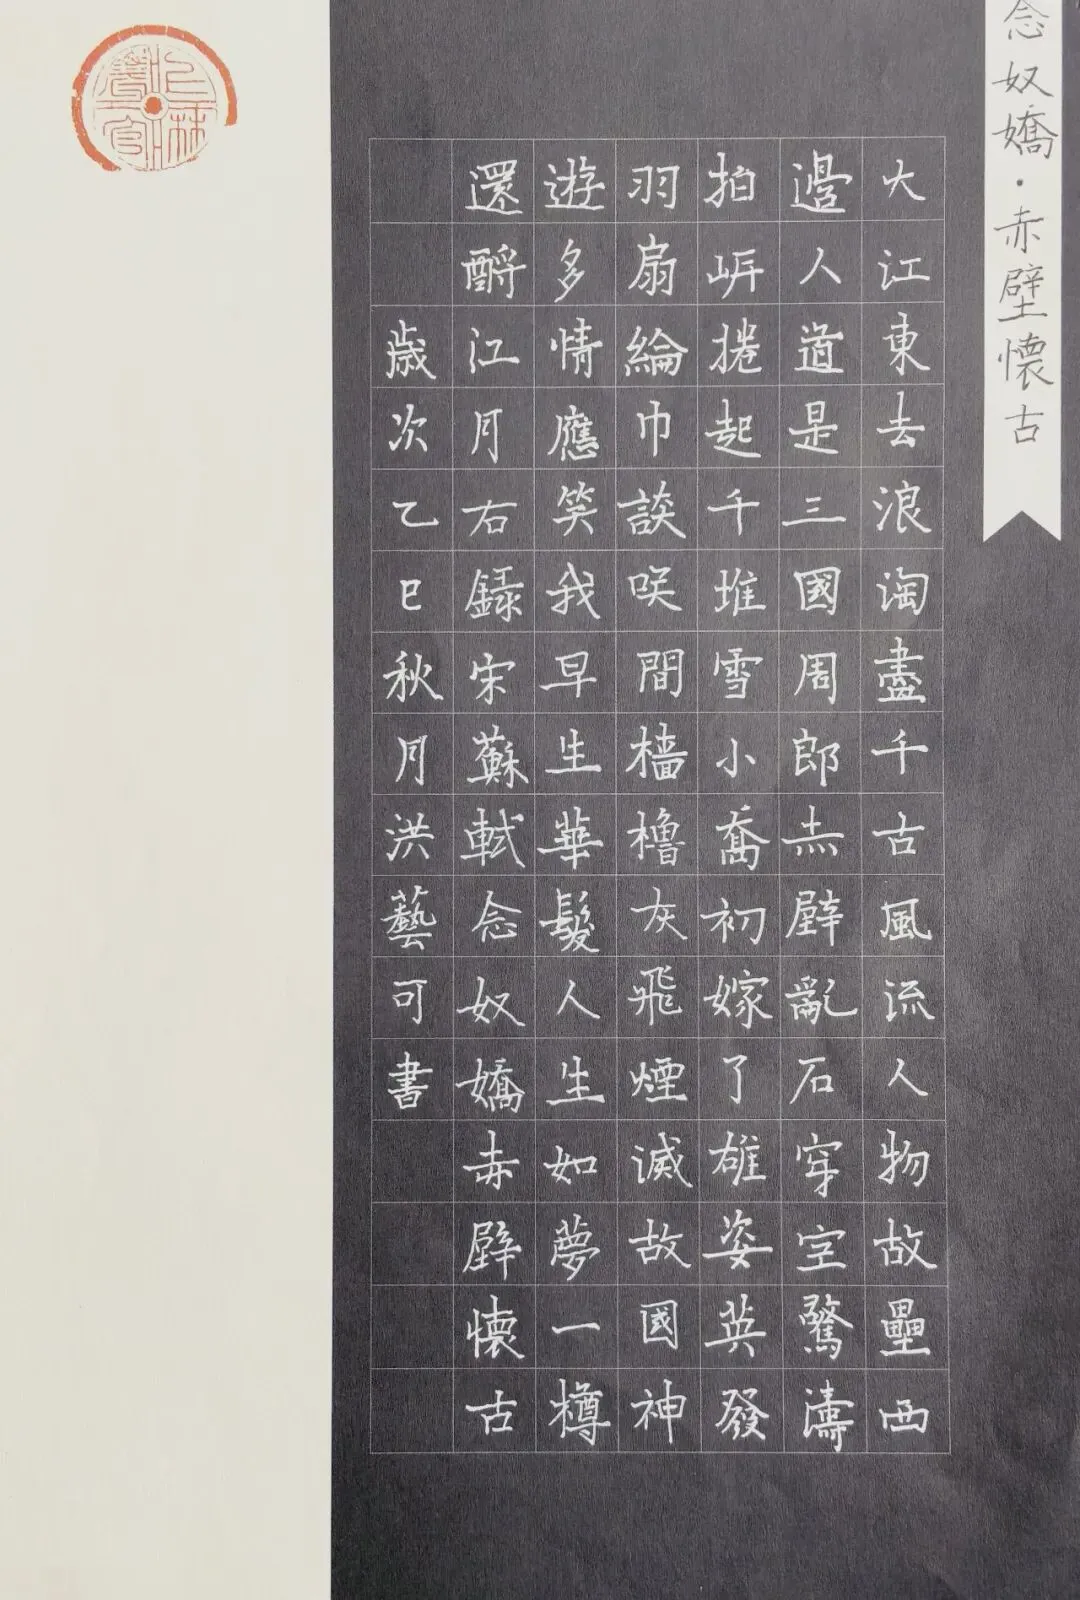 念奴嬌·赤壁懷古
大江東去浪淘盡千古風流人物故壘西
邊人道是三國周郎赤壁亂石穿空驚濤
拍岸捲起千堆雪小喬初嫁了雄姿英發
羽扇綸巾談笑間檣櫓灰飛煙滅故國神
遊多情應笑我早生華髮人生如夢一樽
還酹江月右錄宋蘇軾念奴嬌赤壁懷古
歲次乙巳秋月洪藝可書